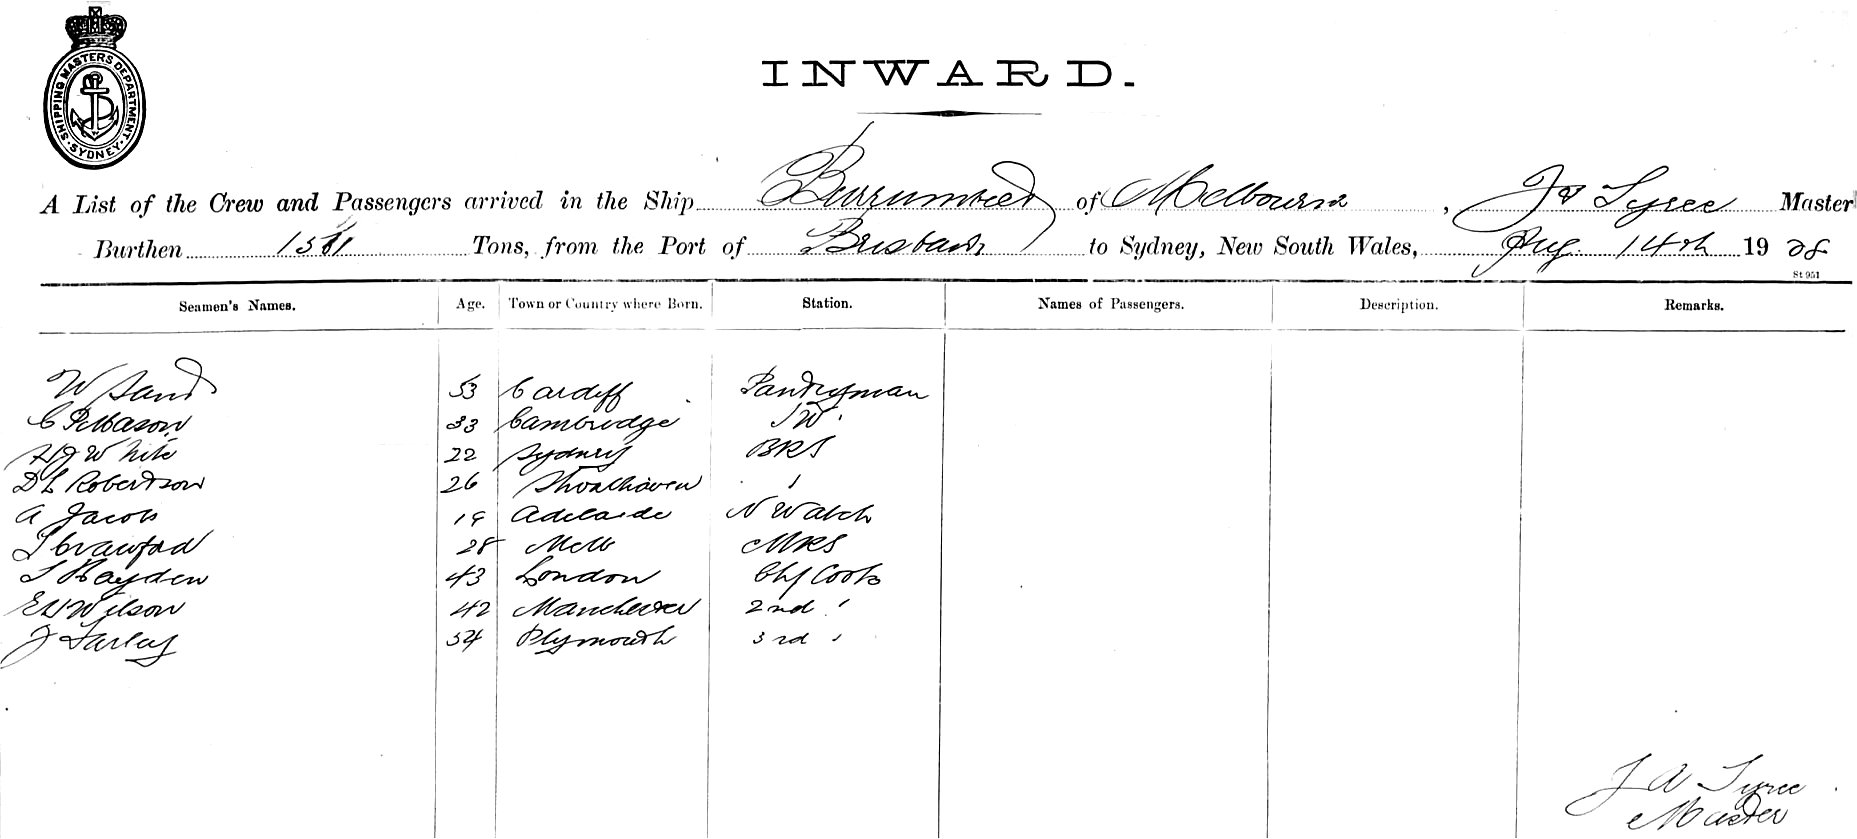 SHIPPING MASTERS DEPARTMENT · SYDNEY ·
INWARD.
A List of the Crew and Passengers arrived in the Ship Burrumbeet of Melbourne, J A Tyree Master
Burthen Tons, from the Port of Brisbane to Sydney, New South Wales, Aug 14th 1928
St 951
Seamen's Names. Age. Town or Country where Born. Station. Names of Passengers. Description. Remarks.
W Sand 53 Cardiff Pantryman
C P Mason 33 Cambridge
H J White 22 Sydney BRS
D L Robertson 26 Shoalhaven "
A Jacob 19 Adelaide N Watch
Crawford 28 Melb MRS
Hayden 43 London Chf Cook
E W Wilson 42 Manchester 2nd "
J Farley 54 Plymouth 3rd "
J A Tyree
Master